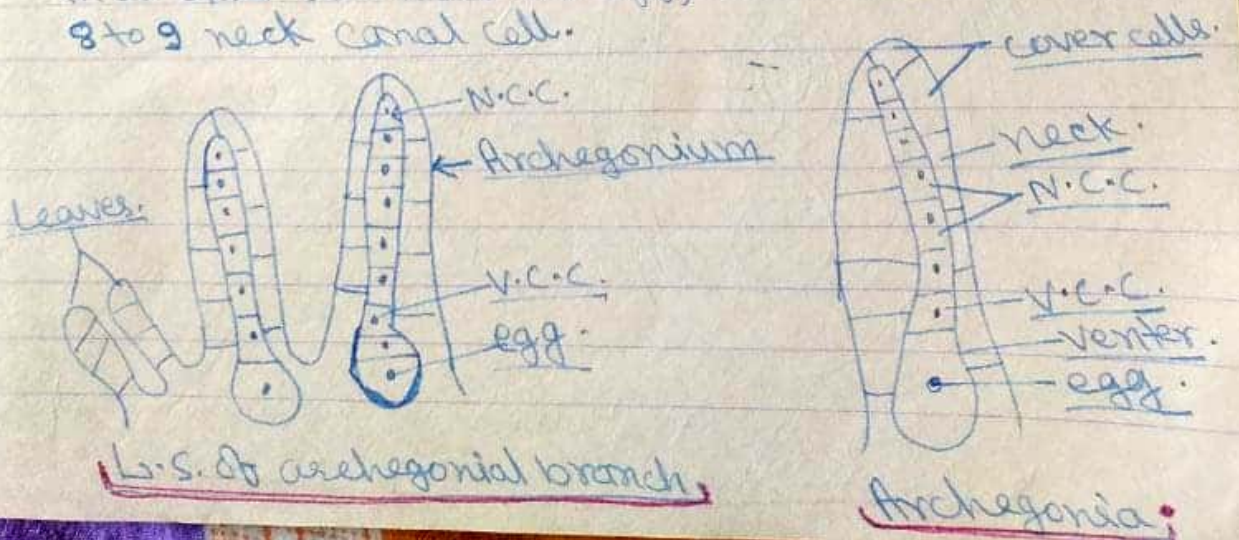 8 to 9 neck canal cell.
N.C.C.
Archegonium
Leaves.
V.C.C.
egg.
L.S. of archegonial branch,
cover cells.
neck.
N.C.C.
V.C.C.
venter.
egg.
Archegonia;